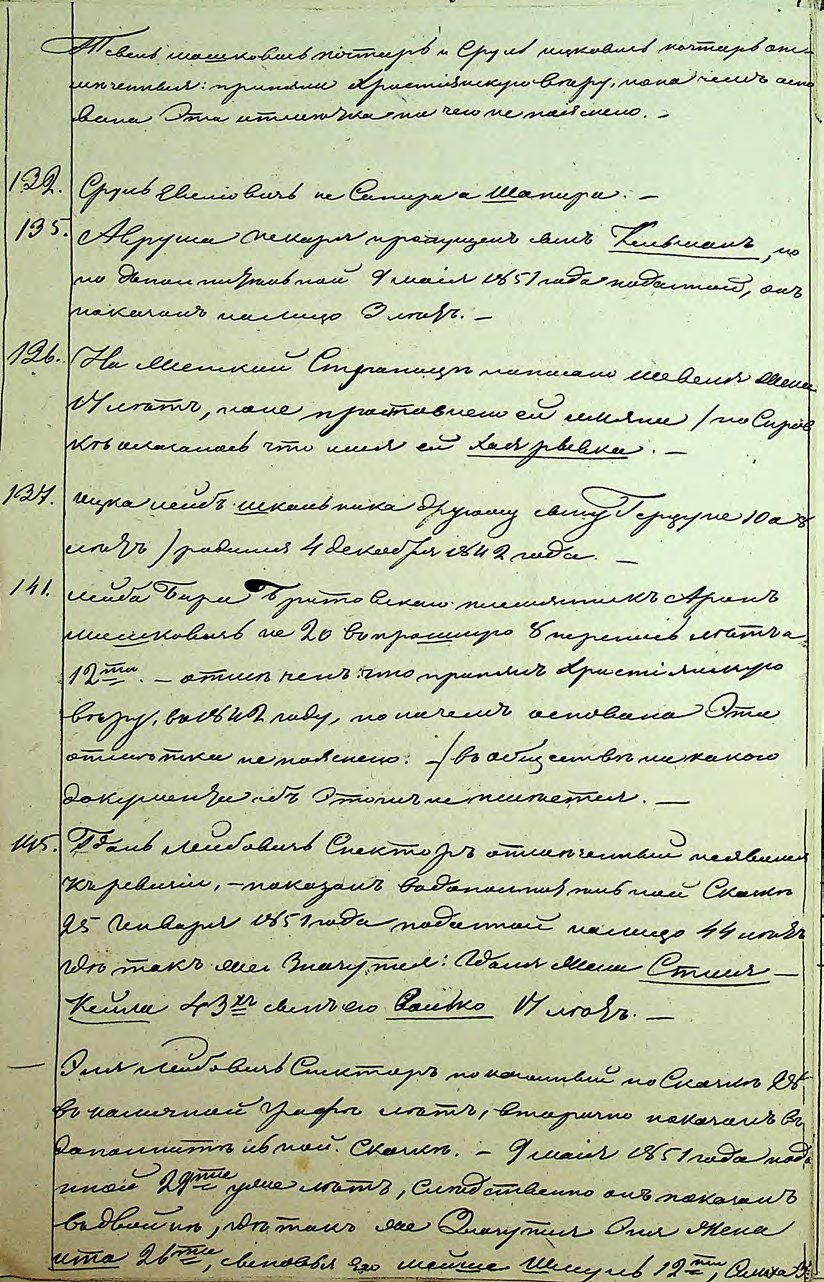 Тевель Мошковичь почтарь и Сруль Ицковичь почтарь отме-
меченные: приняли Христіянскую веру, но на чемъ осно
вана Эта отметка ни чего не пояснено. —
132. Сруль Евелиовичь не Сапира а Шапиро. —
135. Авруша пекаря пропущенъ сынъ Кельманъ, но
по дополнительной 9 маія 1851 года поданной, онъ
показанъ на лицо 3 летъ. —
136. На Женской Страницъ написано Шевеля жена
17 летъ, но не проставлено ей имяни / по Справ
къ оказалось что имя ей Хая рывка. —
137. Ицка лейбъ школьника другому сыну Герцу не 10 а 8
летъ / родился 4 декабря 1842 года. —
141. Лейба Бера Бритовскаго племянникъ Аронъ
Мошковичь не 20 в прошлую 8 перепись летъ а
12ти. — отмечен: что принялъ Христіянскую
веру, въ 1842 году, но на чемъ основана Эта
отметка не пояснено. — / въ обществе никакого
документа объ Этомъ не имеется. —
145. Гдаль Лейбовичь Спекторъ отмеченный неявился
къ ревизіи, — показанъ въ дополнительной Сказке
25 Генваря 1851 года поданной на лицо 44 летъ
где такъ же Значутся: Гдаля жена Стися —
Кейла 43хъ сынъ его Волько 17 летъ. —
— Эля Лейбовичь Спекторъ показанный по Сказке 28
въ наличной графе летъ, вторично показанъ въ
дополнительной Сказке. — 9 маія 1851 года пода
нной 29ти уже летъ, Следственно онъ показанъ
въ двойне, где такъ же Значутся Эля жена
ита 26ти, сыновья его Шмуль 12ти,